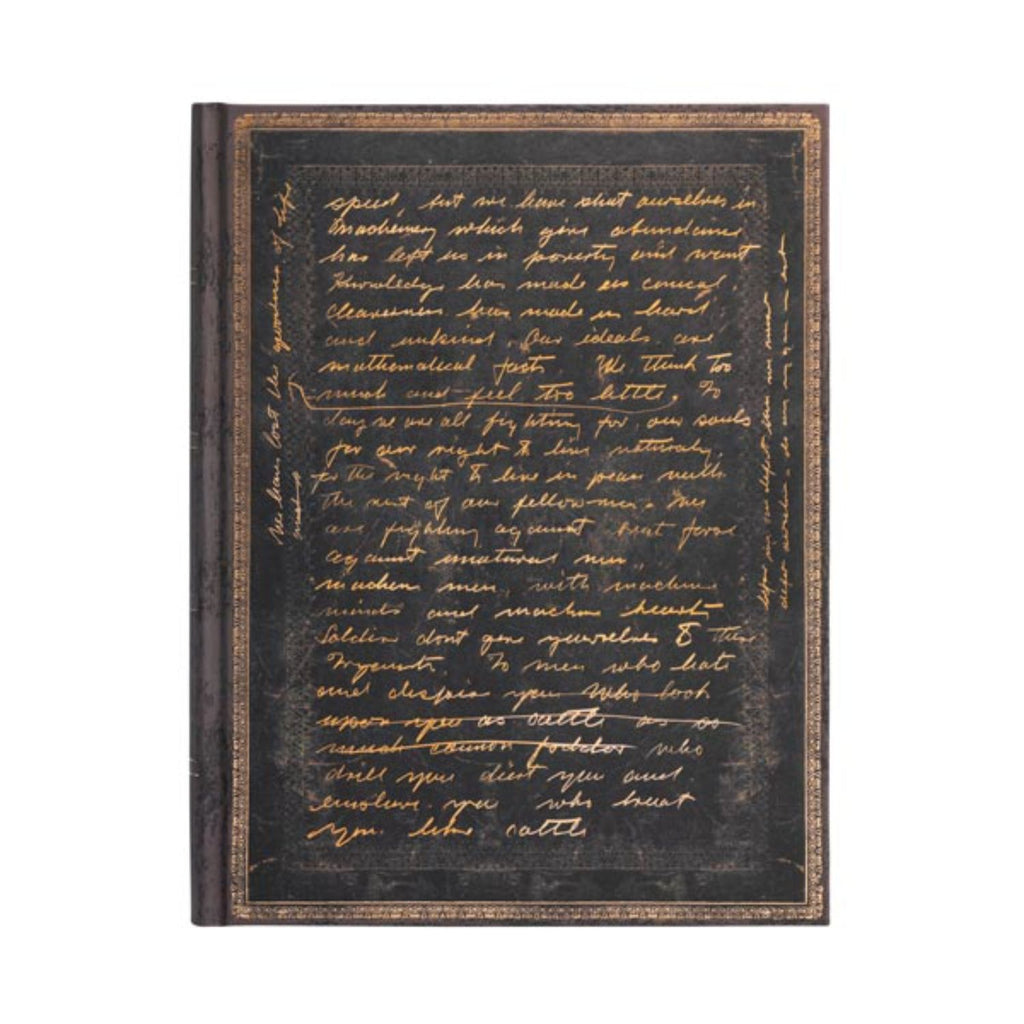 speed, but we have shut ourselves in
machinery which gives abundance
has left us in poverty and want
Knowledge has made us cynical
cleverness has made us hard
and unkind. Our ideals are
mathematical facts. We think too
much and feel too little. To
day we are all fighting for our souls
for our right to live naturaly
for the right to live in peace with
the rest of our fellowmen. We
are fighting against brut force
against unatural men
machine men, with machine
minds and machine hearts
Soldiers dont give yourselves to these
To men who hate
and despise you who look
upon you as cattle as so
much cannon fodder who
drill you diet you and
enslave you who treat
you like cattle
We have lost the of life